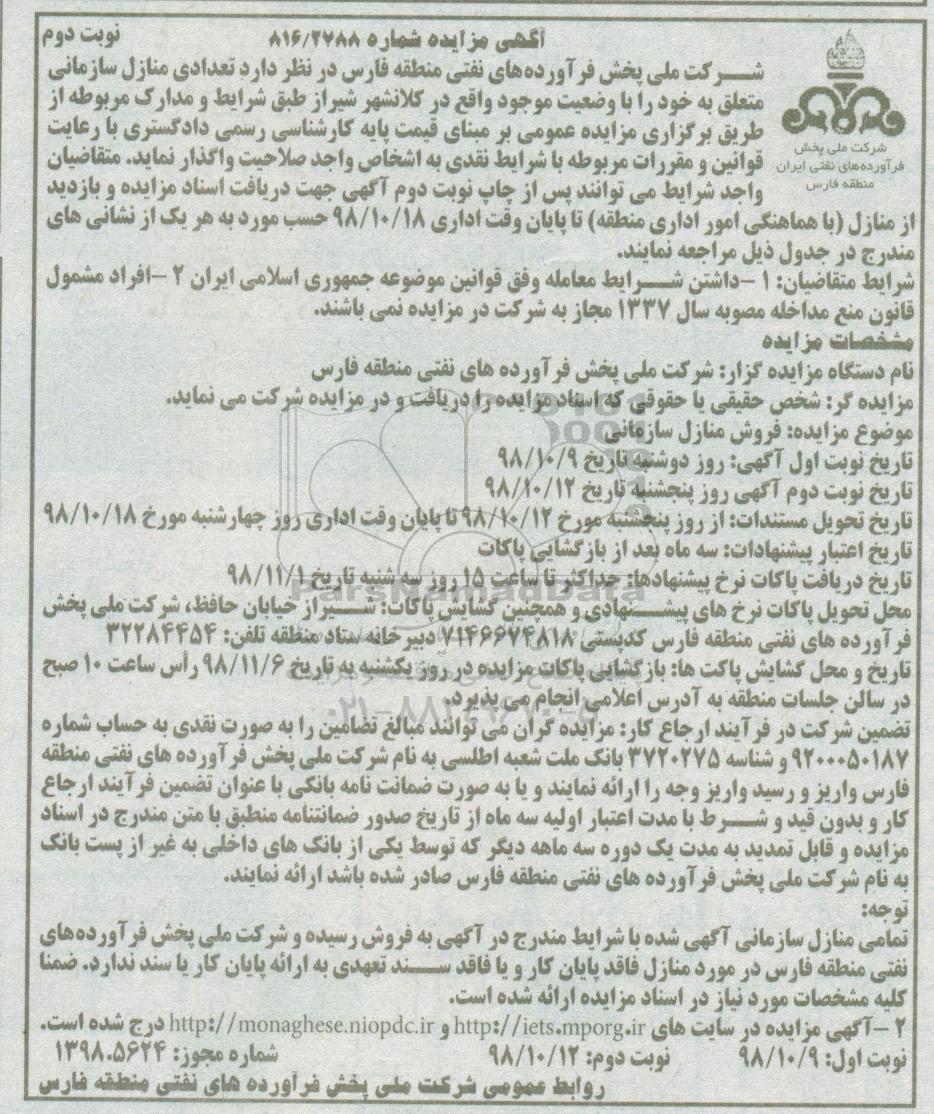 آگهی مزایده شماره ۸۱۶/۲۷۸۸
نوبت دوم
شرکت ملی پخش
فرآورده‌های نفتی ایران
منطقه فارس
شرکت ملی پخش فرآورده‌های نفتی منطقه فارس در نظر دارد تعدادی منازل سازمانی
متعلق به خود را با وضعیت موجود واقع در کلانشهر شیراز طبق شرایط و مدارک مربوطه از
طریق برگزاری مزایده عمومی بر مبنای قیمت پایه کارشناسی رسمی دادگستری با رعایت
قوانین و مقررات مربوطه با شرایط نقدی به اشخاص واجد صلاحیت واگذار نماید. متقاضیان
واجد شرایط می توانند پس از چاپ نوبت دوم آگهی جهت دریافت اسناد مزایده و بازدید
از منازل (با هماهنگی امور اداری منطقه) تا پایان وقت اداری ۹۸/۱۰/۱۸ حسب مورد به هر یک از نشانی های
مندرج در جدول ذیل مراجعه نمایند.
شرایط متقاضیان: ۱ –داشتن شرایط معامله وفق قوانین موضوعه جمهوری اسلامی ایران ۲ –افراد مشمول
قانون منع مداخله مصوبه سال ۱۳۳۷ مجاز به شرکت در مزایده نمی باشند.
مشخصات مزایده
نام دستگاه مزایده گزار: شرکت ملی پخش فرآورده های نفتی منطقه فارس
مزایده گر: شخص حقیقی یا حقوقی که اسناد مزایده را دریافت و در مزایده شرکت می نماید.
موضوع مزایده: فروش منازل سازمانی
تاریخ نوبت اول آگهی: روز دوشنبه تاریخ ۹۸/۱۰/۹
تاریخ نوبت دوم آگهی روز پنجشنبه تاریخ ۹۸/۱۰/۱۲
تاریخ تحویل مستندات: از روز پنجشنبه مورخ ۹۸/۱۰/۱۲ تا پایان وقت اداری روز چهارشنبه مورخ ۹۸/۱۰/۱۸
تاریخ اعتبار پیشنهادات: سه ماه بعد از بازگشایی پاکات
تاریخ دریافت پاکات نرخ پیشنهادها: حداکثر تا ساعت ۱۵ روز سه شنبه تاریخ ۹۸/۱۱/۱
ParsNamadData
محل تحویل پاکات نرخ های پیشنهادی و همچنین گشایش پاکات: شیراز خیابان حافظ، شرکت ملی پخش
فرآورده های نفتی منطقه فارس کدپستی ۷۱۴۶۶۷۴۸۱۸ دبیرخانه ستاد منطقه تلفن: ۳۲۲۸۴۴۵۴
تاریخ و محل گشایش پاکت ها: بازگشایی پاکات مزایده در روز یکشنبه به تاریخ ۹۸/۱۱/۶ رأس ساعت ۱۰ صبح
در سالن جلسات منطقه به آدرس اعلامی انجام می پذیرد.
تضمین شرکت در فرآیند ارجاع کار: مزایده گران می توانند مبالغ تضامین را به صورت نقدی به حساب شماره
۹۲۰۰۰۵۰۱۸۷ و شناسه ۳۷۲۰۲۷۵ بانک ملت شعبه اطلسی به نام شرکت ملی پخش فرآورده های نفتی منطقه
فارس واریز و رسید واریز وجه را ارائه نمایند و یا به صورت ضمانت نامه بانکی با عنوان تضمین فرآیند ارجاع
کار و بدون قید و شرط با مدت اعتبار اولیه سه ماه از تاریخ صدور ضمانتنامه منطبق با متن مندرج در اسناد
مزایده و قابل تمدید به مدت یک دوره سه ماهه دیگر که توسط یکی از بانک های داخلی به غیر از پست بانک
به نام شرکت ملی پخش فرآورده های نفتی منطقه فارس صادر شده باشد ارائه نمایند.
توجه:
تمامی منازل سازمانی آگهی شده با شرایط مندرج در آگهی به فروش رسیده و شرکت ملی پخش فرآورده‌های
نفتی منطقه فارس در مورد منازل فاقد پایان کار و یا فاقد سند تعهدی به ارائه پایان کار یا سند ندارد. ضمنا
کلیه مشخصات مورد نیاز در اسناد مزایده ارائه شده است.
۲ –آگهی مزایده در سایت های http://iets.mporg.ir و http://monaghese.niopdc.ir درج شده است.
نوبت اول: ۹۸/۱۰/۹ نوبت دوم: ۹۸/۱۰/۱۲ شماره مجوز: ۱۳۹۸.۵۶۲۴
روابط عمومی شرکت ملی پخش فرآورده های نفتی منطقه فارس